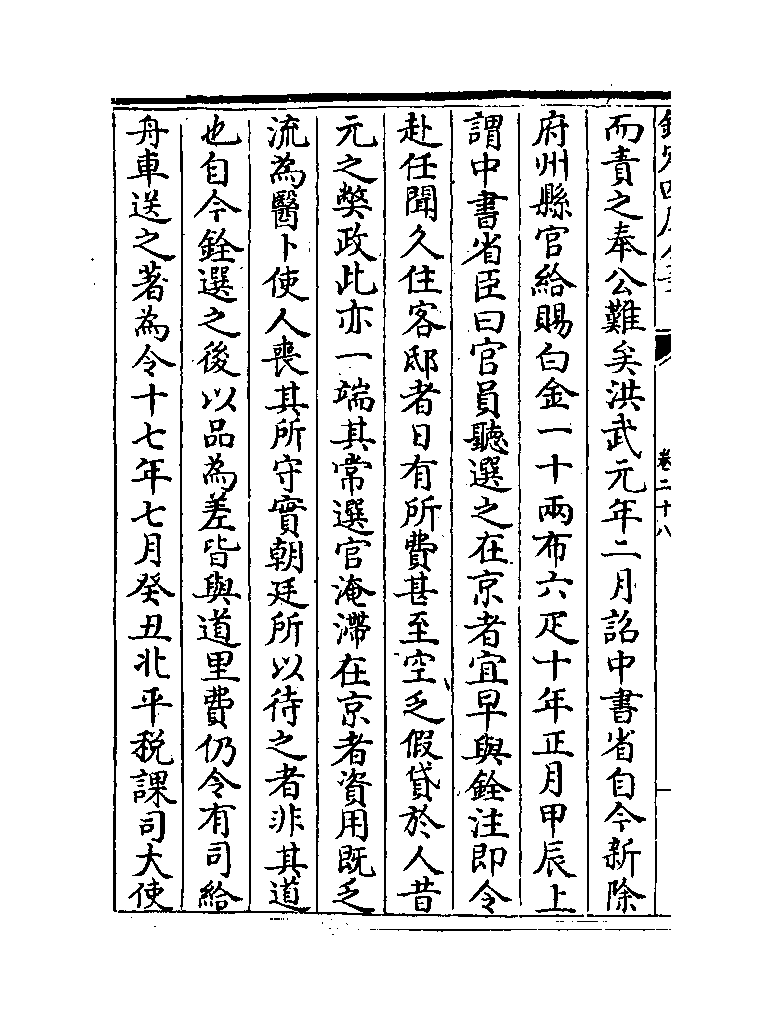 卷二十八
而責之奉公難矣洪武元年二月詔中書省自今新除
府州縣官給賜白金一十兩布六疋十年正月甲辰上
謂中書省臣曰官員聽選之在京者宜早與銓注即令
赴任聞久住客邸者日有所費甚至空乏假貸於人昔
元之弊政此亦一端其常選官淹滯在京者資用既乏
流為醫卜使人喪其所守實朝廷所以待之者非其道
也自今銓選之後以品為差皆與道里費仍令有司給
舟車送之著為令十七年七月癸丑北平稅課司大使